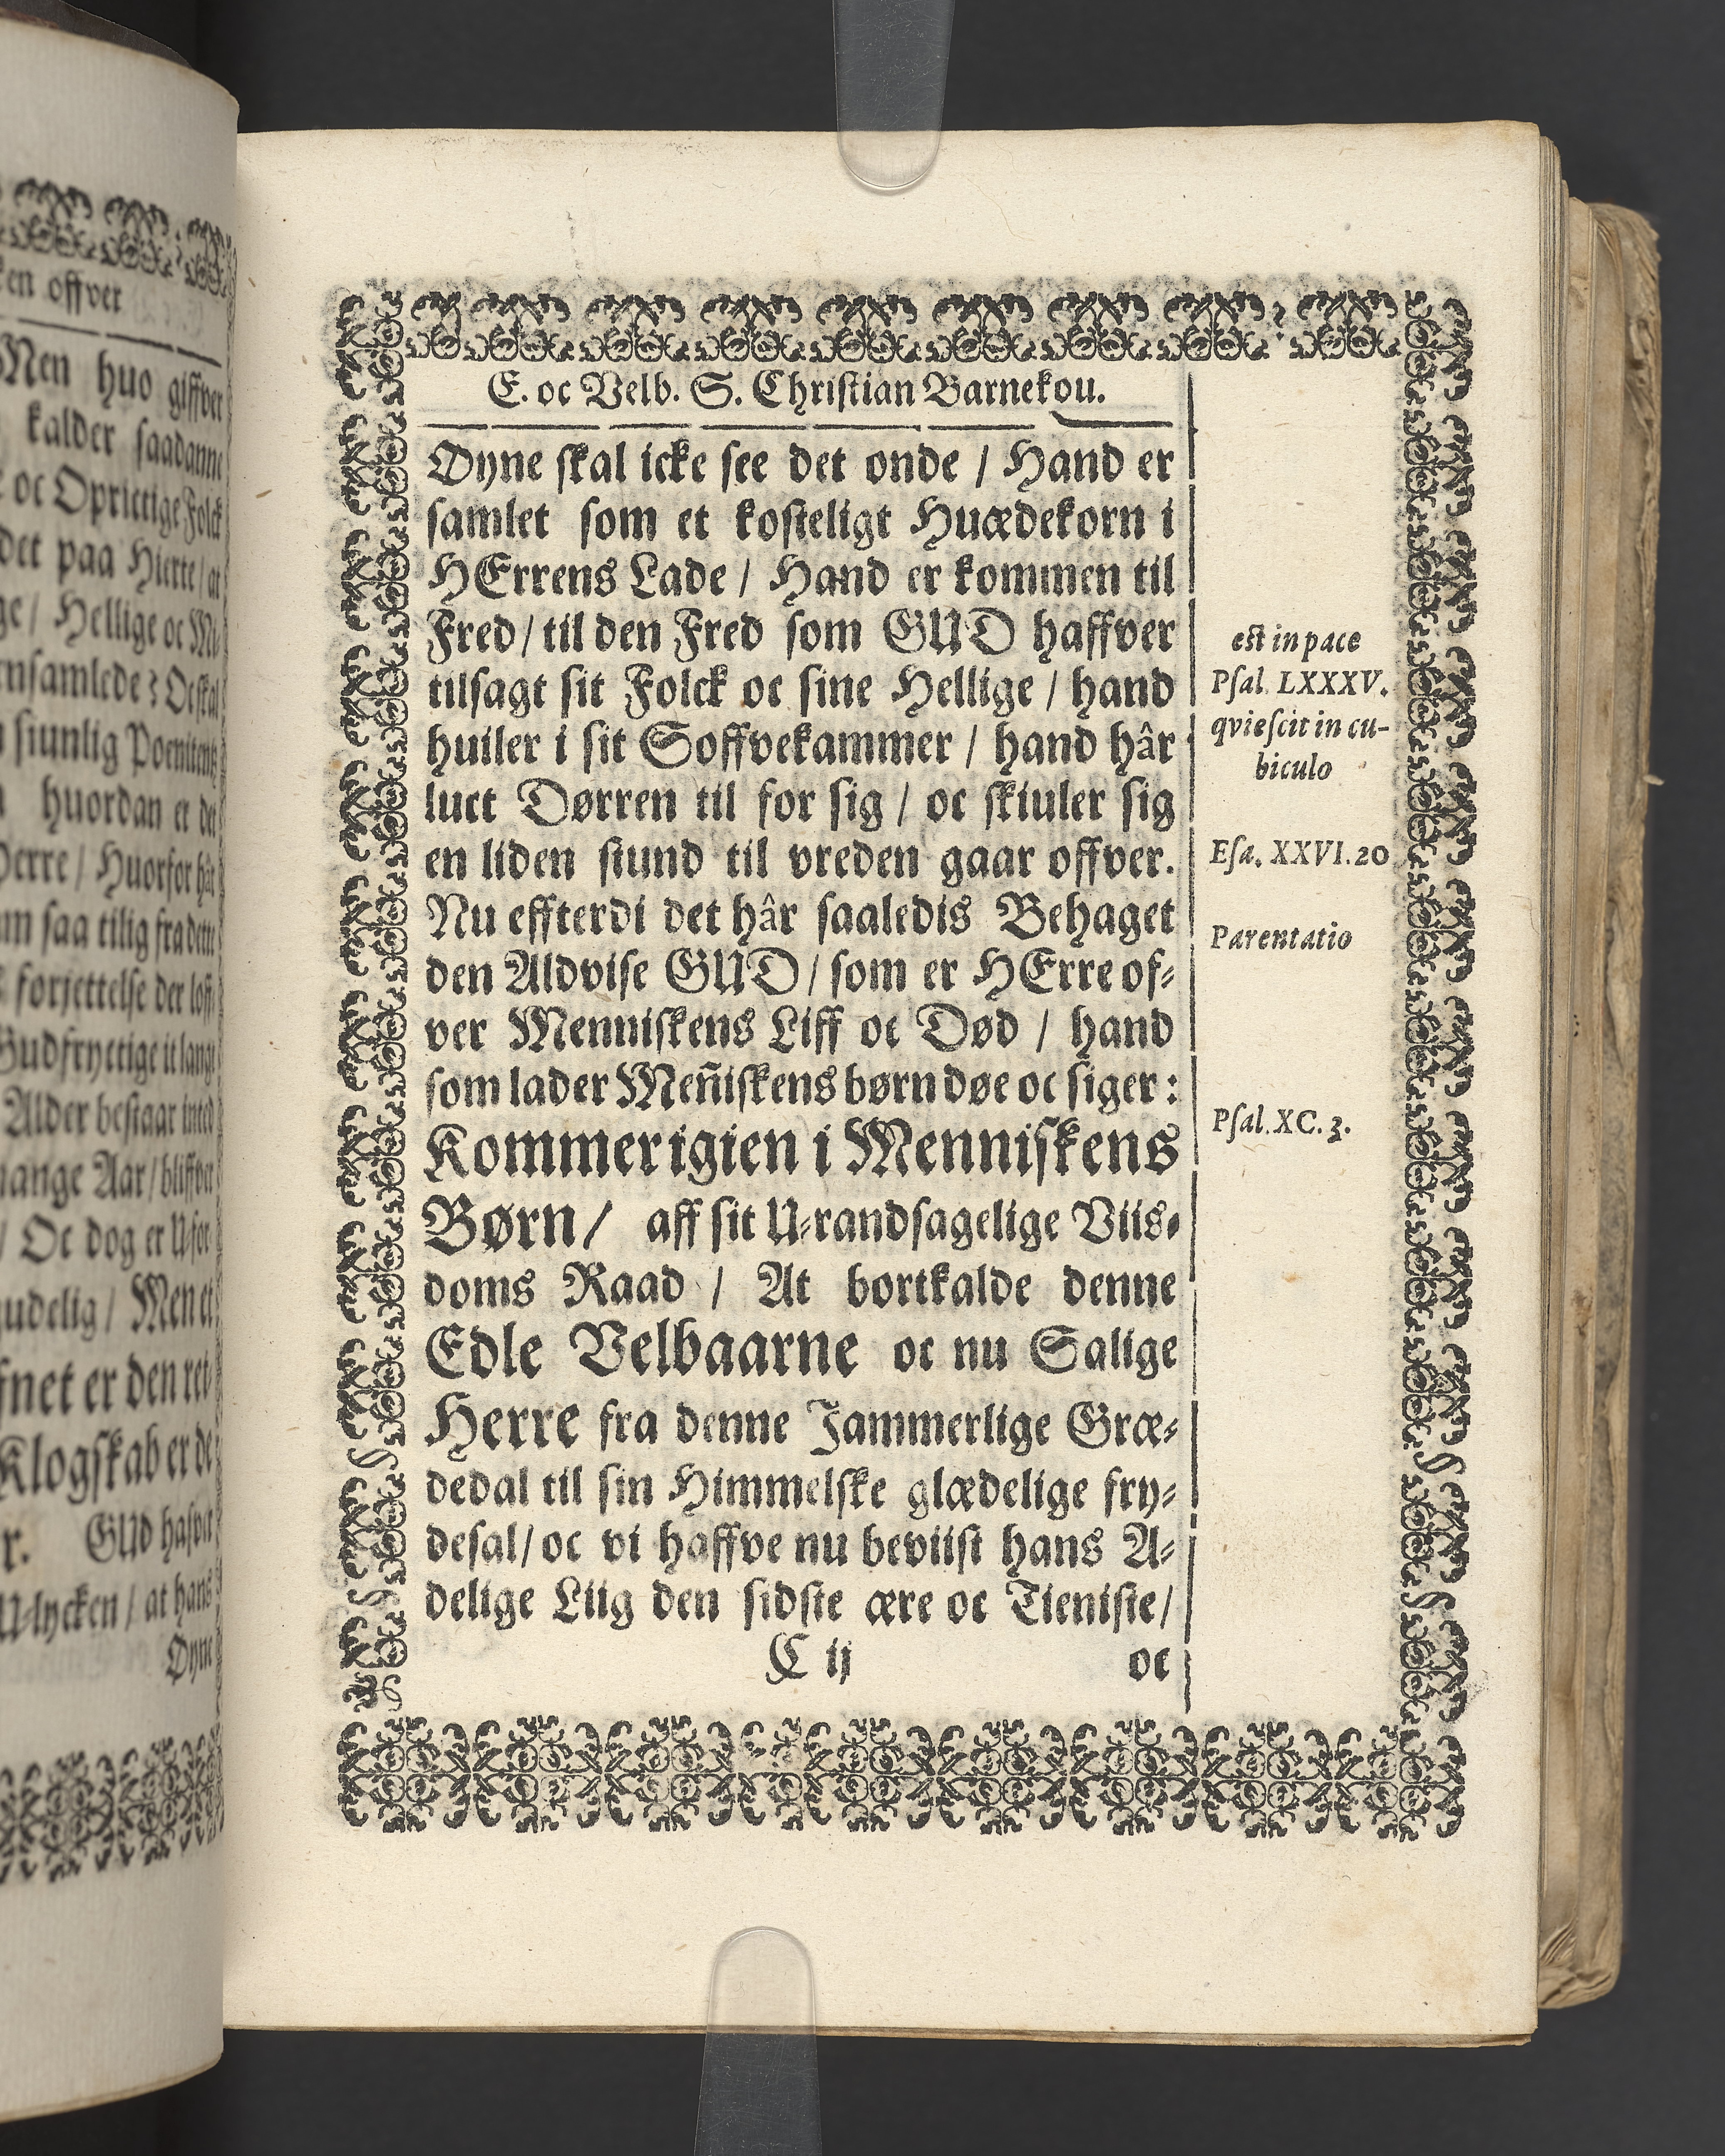 en offver
Men huo giffver
kalder saadanne
oc Oprictige Folck
det paa Hierte / at
ge / Hellige oc Mi-
ensamlede ? Oc skal
siunlig Poenitentz
huordan et det
Herre / Huorfor hâr
saa tilig fra dette
forjettelse der loff-
Gudfryctige it langt
Alder bestaar inted
mange Aar / bliffver
/ Oc dog er U-for-
gudelig / Men et
er den ret-
Klogskab er de
r. GUD hafver
U-lycken / at hans
Øyne
E. oc Velb. S. Christian Barnekou.
Øyne skal icke see det onde / Hand er
samlet som et kosteligt Huædekorn i
HErrens Lade / Hand er kommen til
Fred / til den Fred som GUD haffver
tilsagt sit Folck oc sine Hellige / hand
huiler i sit Soffvekammer / hand hâr
luct Dørren til for sig / oc skiuler sig
en liden stund til vreden gaar offver.
Nu effterdi det hâr saaledis Behaget
den Aldvise GUD / som er HErre of-
ver Menniskens Liff oc Død / hand
som lader Meñiskens børn døe oc siger :
Kommer igien i Menniskens
Børn / aff sit U-randsagelige Viis-
doms Raad / At bortkalde denne
Edle Velbaarne oc nu Salige
Herre fra denne Jammerlige Græ-
dedal til sin Himmelske glædelige fry-
desal / oc vi haffve nu beviist hans A-
delige Liig den sidste ære oc Tieniste /
C ij oc
est in pace
Psal. LXXXV.
qviescit in cu-
biculo
Esa. XXVI. 20
Parentatio
Psal. XC. 3.